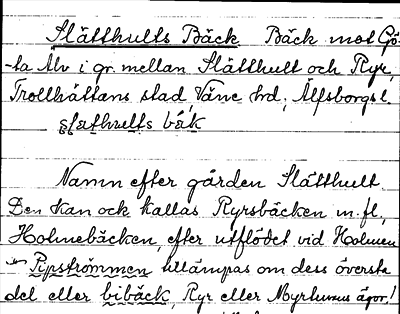 Slätthults Bäck Bäck mot Gö-
-ta Älv i gr. mellan Slätthult och Ryr,
Trollhättans stad, Väne hd, Älfsborgs l.
slæthults bäk
Namn efter gården Slätthult.
Den kan ock kallas Ryrsbäcken m. fl.,
Holmebäcken, efter utflödet vid Holmen
Pipströmmen tillämpas om dess översta
del eller bibäck, Ryr eller Myrhumus ägor!